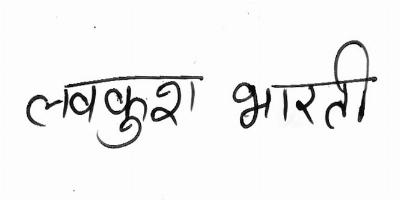 लवकुश भारती